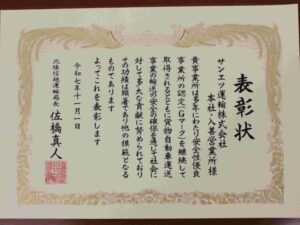 表彰状
サンエツ運輸株式会社
本社・入善営業所様
貴事業所は多年にわたり安全性優良
事業所の認定(Gマーク)を継続して
取得されるとともに貨物自動車運送
事業の輸送の安全の確保を通じて社会に
対して多大な貢献に努められており
その功績は顕著であり他の模範となる
ものであります
よってこれを表彰します
令和七年十一月一日
北陸信越運輸局長
佐橋真人